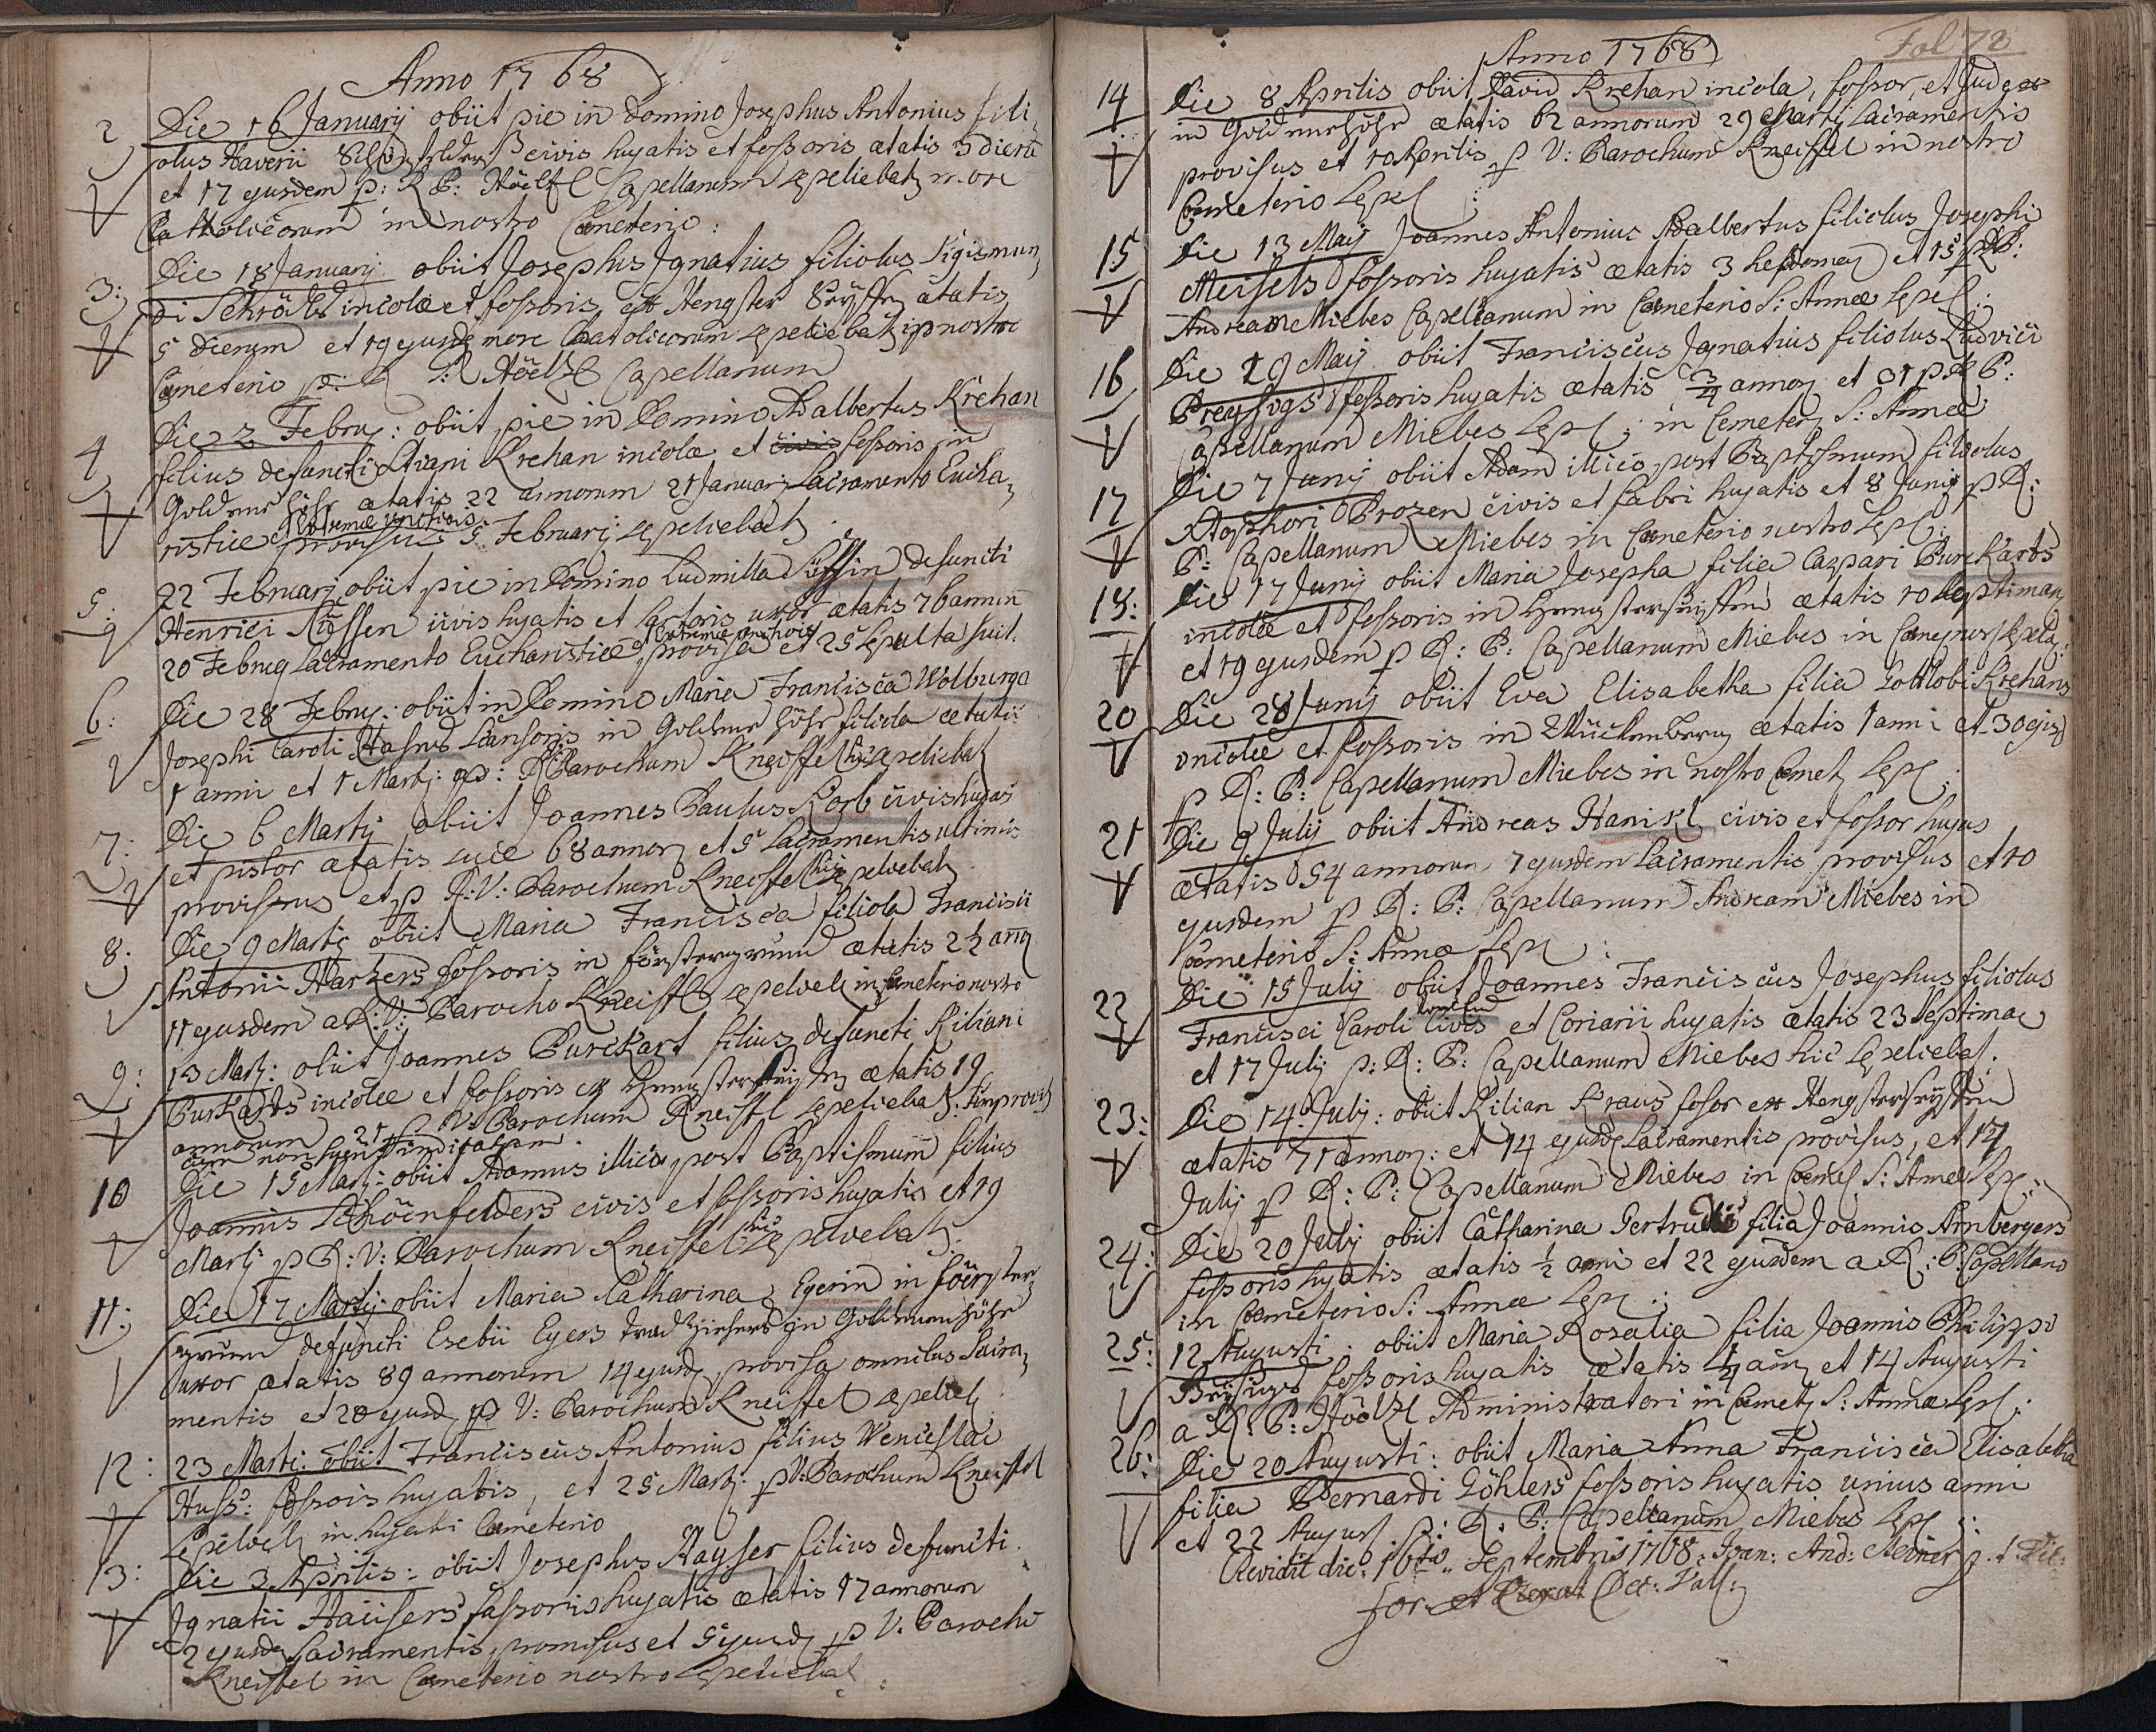 Anno 1768
2
Die 16 Januarij obiit pie in Domino Josephus Antonius fili,
olus Xaverii civis hujatis et fossoris ætatis 3 dierū
et 17 ejusdem p: R P: Höelzl Capellanum sepeliebat more
Catholicorum in nostro Cœmeterio:
3:
Die 18 Januarij obiit Josephus Ignatius filiolus Sigismun,
di Schrödls incolæ et fossoris ex Hengster ætatis
5 dierum et 19 ejusd more Catolicorum sepeliebat in nostro
Cœmeterio p: R Höelzl Capellanum
4
Die 2 Febru: obiit pie in Domino Adalbertus Krehan
filius defuncti Krehan incolæ et civis fossoris in
Goldnur höhe ætatis 22 annorum 21 Januarij Sacramento Eucha,
ristiæ et extremæ unctionis provisus 5 Februarij sepeliebat
5:
22 Februarij obiit pie in Domino Ludmilla Süssin defuncti
Henrici Süssen civis hujatis et uxor ætatis 76 annum
20 Februa Sacramento Eucharistiæ et extremæ unctionis provisa et 25 sepulta fuit.
6:
Die 28 Febru: obiit in Domino Maria Francisca Wolburga
Josephi Caroli in Goldnur höhe filiola ætatis
1 anni et 1 Martij: p: R Parochum Kneissel hic sepeliebat
7:
Die 6 Martij obiit Joannes Paulus Korb civis hujas
et pistor ætatis suæ 68 annor et 5 Sacramentis ultimis
provissus et p R: V: Parochum Kneissel hic sepeliebat
8:
Die 9 Martij obiit Maria Francisca filiola Francisci
Antonii Harkers fossoris in försterngrünn ætatis 2 ½ ann
11 ejusdem a R: V: Parocho Kneissl sepeliebat in Cœmeterio nostro
9:
13 Martij: obiit Joannes Burckart filius defuncti Kiliani
Burkarts incolæ et fossoris ex ætatis 19
annorum 21 p V: Parochum Kneissl sepeliebat: Improvis
cum non
10
Die 15 Martij: obiit Adamus illico post Baptismum filius
Joannis Schöenfelders civis et fossoris hujatis et 19
Martij p R: V: Parochum Kneissel hic sepeliebat
11:
Die 17 Martij obiit Maria Catharina Egerin in förster,
grünn defuncti Esebii Egers in Goldnurhöhe
uxor ætatis 89 annorum 14 ejusd provisa omnibus Sacra,
mentis et 20 ejusd p V: Parochum Kneissel sepelieb
12:
23 Martij: obiit Franciscus Antonius filius Wenceslai
Huss: fossoris hujatis, et 25 Martij p V: Parochum Kneissel
sepelieb in hujati Cœmeterio
13:
Die 3 Aprilis: obiit Josephus Hayser filius defuncti
Ignatii Haüsers fossoris hujatis ætatis 17 annorum
2 ejusdem Sacramentis provisus et 5 ejusd p V. Parochū
Kneissel in Cœmeterio nostro sepeliebat:
Anno 1768
Fol 72
14
Die 8 Aprilis obiit David Krehan incola, fossor, et Judex
in Goldnurhöhe ætatis 62 annorum 29 Martij Sacramentis
provisus et 10 Aprilis p V: Parochum Kneissel in nostro
Cœmeterio Sepel:
15
Die 13 Maij Joannes Antonius Adalbertus filiolus Josephi
Meisels fossoris hujatis ætatis 3 hebdomad et 15 p R P:
Andream Miebes Capellanum in Cœmeterio S: Annæ sepel:
16
Die 29 Maij obiit Franciscus Ignatius filiolus Ludvici
fossoris hujatis ætatis ¾ annor et 31 p R P:
Capellanum Miebes Sepel: in Cemeter S: Annæ
17
Die 7 Junij obiit Adam illico post Baptismum filiolus
Xtophori Prozen civis et fabri hujatis et 8 Junij p R:
P: Capellanum Miebes in Cœmeterio nostro Sepel:
18:
Die 17 Junij obiit Maria Josepha filia Caspari Burckarts
incolæ et fossoris in ætatis 10 Septiman
et 19 ejusdem p R: P: Capellanum Miebes in Cœme nos sepel
20
Die 28 Junij obiit Eva Elisabetha filia Gottlobi Krehans
incolæ et fossoris in Mückenberg ætatis 1 anni et 30 ejusd
p R: P: Capellanum Miebes in nostro Cœmet Sepel:
21
Die 9 Julij obiit Andreas Hanikl civis et fossor hujus
ætatis 54 annorum 7 ejusdem Sacramentis provisus et 10
ejusdem p R: P: Capellanum Andream Miebes in
Cœmeterio S: Annæ Sepel:
22
Die 15 Julij obiit Joannes Franciscus Josephus filiolus
Francisci Caroli civis et Coriarii hujatis ætatis 23 Septimae
et 17 Julij p: R: P: Capellanum Miebes hic Sepeliebat.
23:
Die 14 Julij: obiit Kilian Kraus fosor ex Hengsterheysten
ætatis 71 annor: et 14 ejusd Sacramentis provisus, et 17
Julij p R: P: Capellanum Miebes in Cœmet S: Annæ Sepel:
24:
Die 20 Julij obiit Catharina Gertrudis filia Joannis Arnbergers
fossoris hujatis ætatis ½ anni et 22 ejusdem a R: P: Capellano
in Cœmeterio S: Annæ Sepel:
25:
12 Augusti: obiit Maria Rosalia filia Joannis Philippi
fossoris hujatis ætatis ¼ ann et 14 Augusti
a R: P: Höölzl Administratori in Cœmet S: Annæ Sepel:
26:
Die 20 Augusti: obiit Maria Anna Francisca Elisabetha
filia Bernardi Göhlers fossoris hujatis unius anni
et 22 August p: R: P: Capellanum Miebes Sepel:
Revidit die: 16ta Septembris 1768: Joan: And: